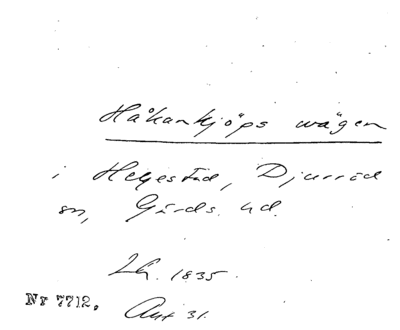 Håkankjöps wägen
i Helgestad, Djurröd
sn, Gärds hd.
Lh. 1835.
Nr 7712.
Akt 31.